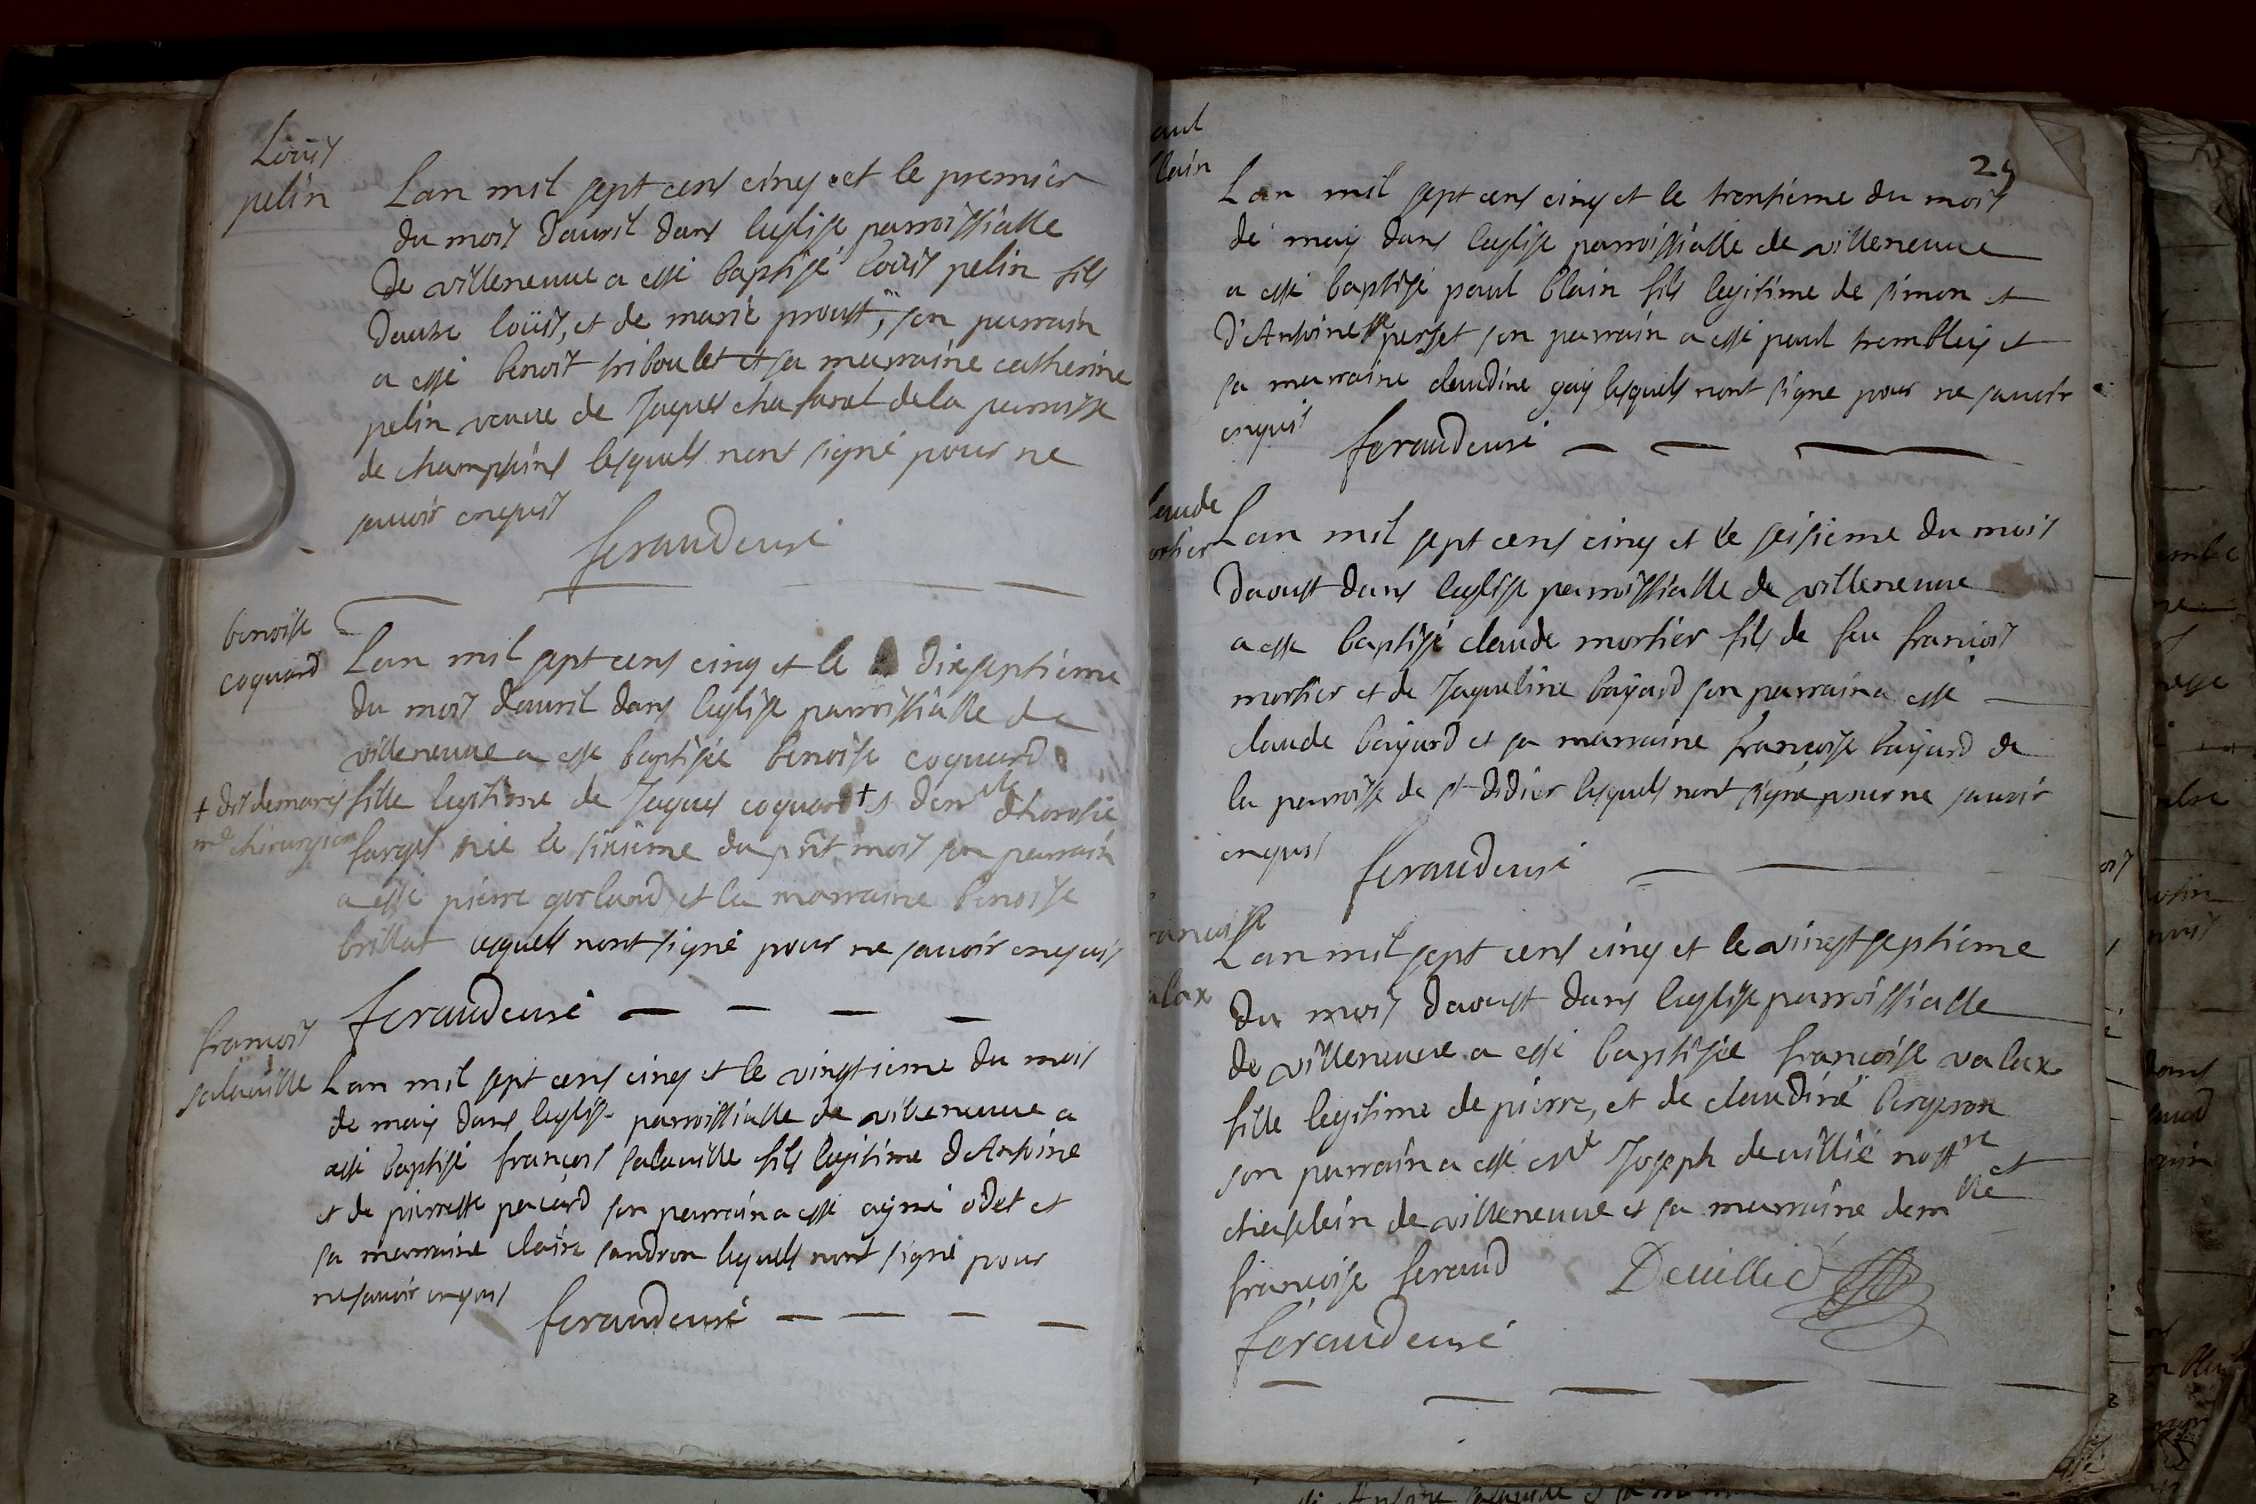 Loüis
pelin
Lan mil sept cens cinq et le premier
du mois d'auril dans leglise parroissialle
de villeneuue a esté baptisé loüis pelin fils
dautre loüis, et de marie proust, son parrain
a esté benoit triboulet et sa marraine catherine
pelin veuue de Jaques chafaral de la parroisse
de champains lesquels nont signé pour ne
sauoir enquis
feraud curé
benoiste
coquard
Lan mil sept cens cinq et le dixseptième
du mois dauril dans leglise parroissialle de
villeneuue a esté baptisée benoiste coquard
+ dit demares
md chirurgien
fille legitime de Jaques coquard + et dem lle dhorotié
farges née le sixieme du pnt mois son parrain
a esté pierre garland et la marraine benoiste
brillat lesquels nont signé pour ne sauoir enquis
feraud curé
francois
salauille
Lan mil sept cens cinq et le vingtieme du mois
de may dans leglise parroissialle de villeneuue a
esté baptisé françois salauille fils legitime d'Antoine
et de pierrette pacard son parrain a esté aymé odet et
sa marraine claire sandron lesquels nont signé pour
ne sauoir enquis
feraud curé
aul
lain
Lan mil sept cens cinq et le trentieme du mois
de may dans leglise parroissialle de villeneuue
a esté baptisé paul blain fils legitime de simon et
d'Antoinette perset son parrain a esté paul trembley et
sa marraine claudine gay lesquels nont signe pour ne sauoir
enquis
feraud curé
laude
ortier
Lan mil sept cens cinq et le seisieme du mois
daoust dans leglise parroissialle de villeneuue
a esté baptisé claude mortier fils de feu francois
mortier et de Jaqueline bayard son parrain a esté
claude bayard et sa marraine françoise bayard de
la parroisse de st didier lesquels nont signé pour ne sauoir
enquis
feraud curé
rancoise
alax
Lan mil sept cens cinq et le vingtseptieme
du mois daoust dans leglise parroissialle
de villeneuue a esté baptisée françoise valax
fille legitime de pierre, et de claudine bergeron
son parrain a esté Joseph deuillié
chapelain de villeneuue et sa marraine dem lle
françoise feraud
Deuillié
feraud curé